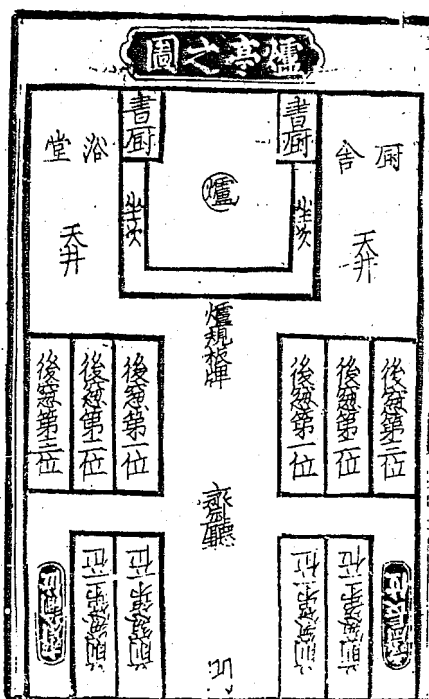 爐亭之圖
書厨
書厨
厨舍
浴堂
爐
坐次
坐次
天井
天井
爐規板牌
後窓第三位
後窓第二位
後窓第一位
後窓第一位
後窓第二位
後窓第三位
齋廳
前窓第二位
前窓第一位
前窓第一位
前窓第二位